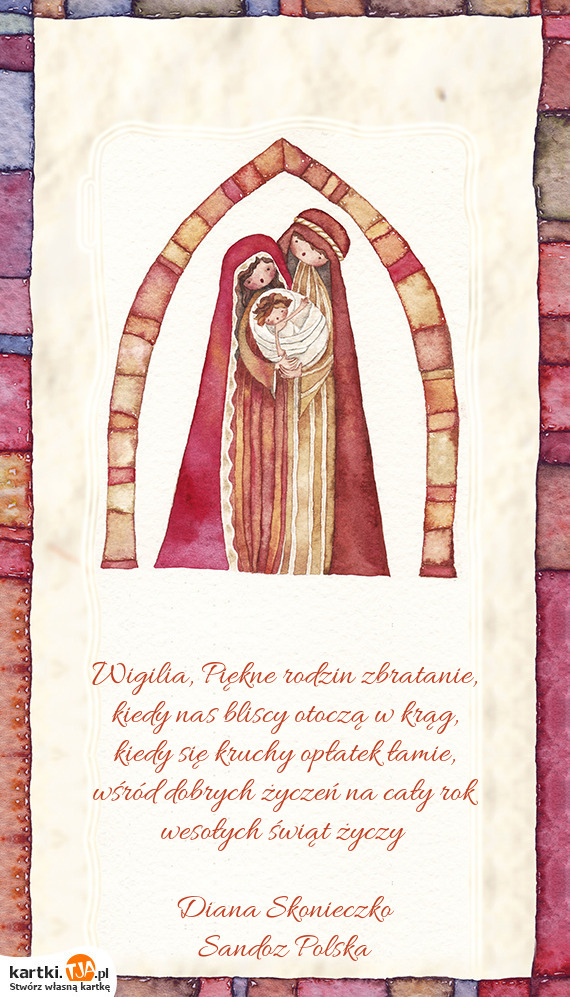 Wigilia, Piękne rodzin zbratanie,
kiedy nas bliscy otoczą w krąg,
kiedy się kruchy opłatek łamie,
wśród dobrych życzeń na cały rok
wesołych świąt życzy
Diana Skonieczko
Sandoz Polska
kartki.TJA.pl
Stwórz własną kartkę